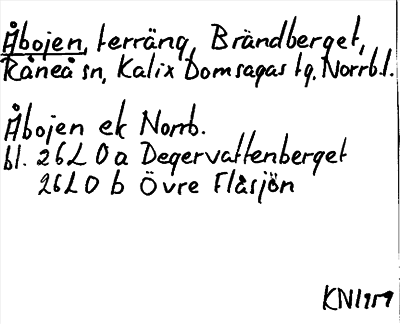 Åbojen, terräng, Brändberget,
Råneå sn, Kalix Domsagas tg, Norrb.l.
Åbojen ek Norrb.
bl. 26L 0a Degervattenberget
26L 0 b Övre Flåsjön
KN1959